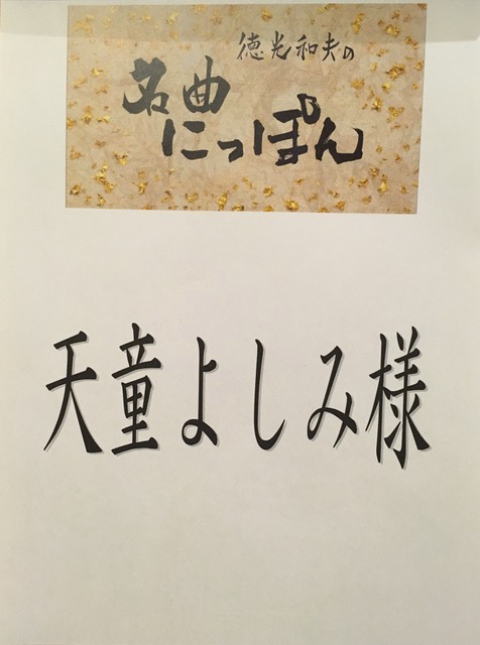 徳光和夫の
名曲
にっぽん
天童よしみ様